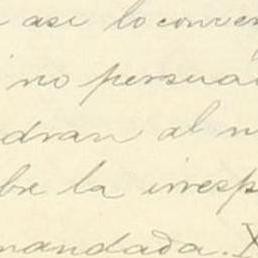 así lo conven
no persuad
dran al n
bre la irresp
mandada.